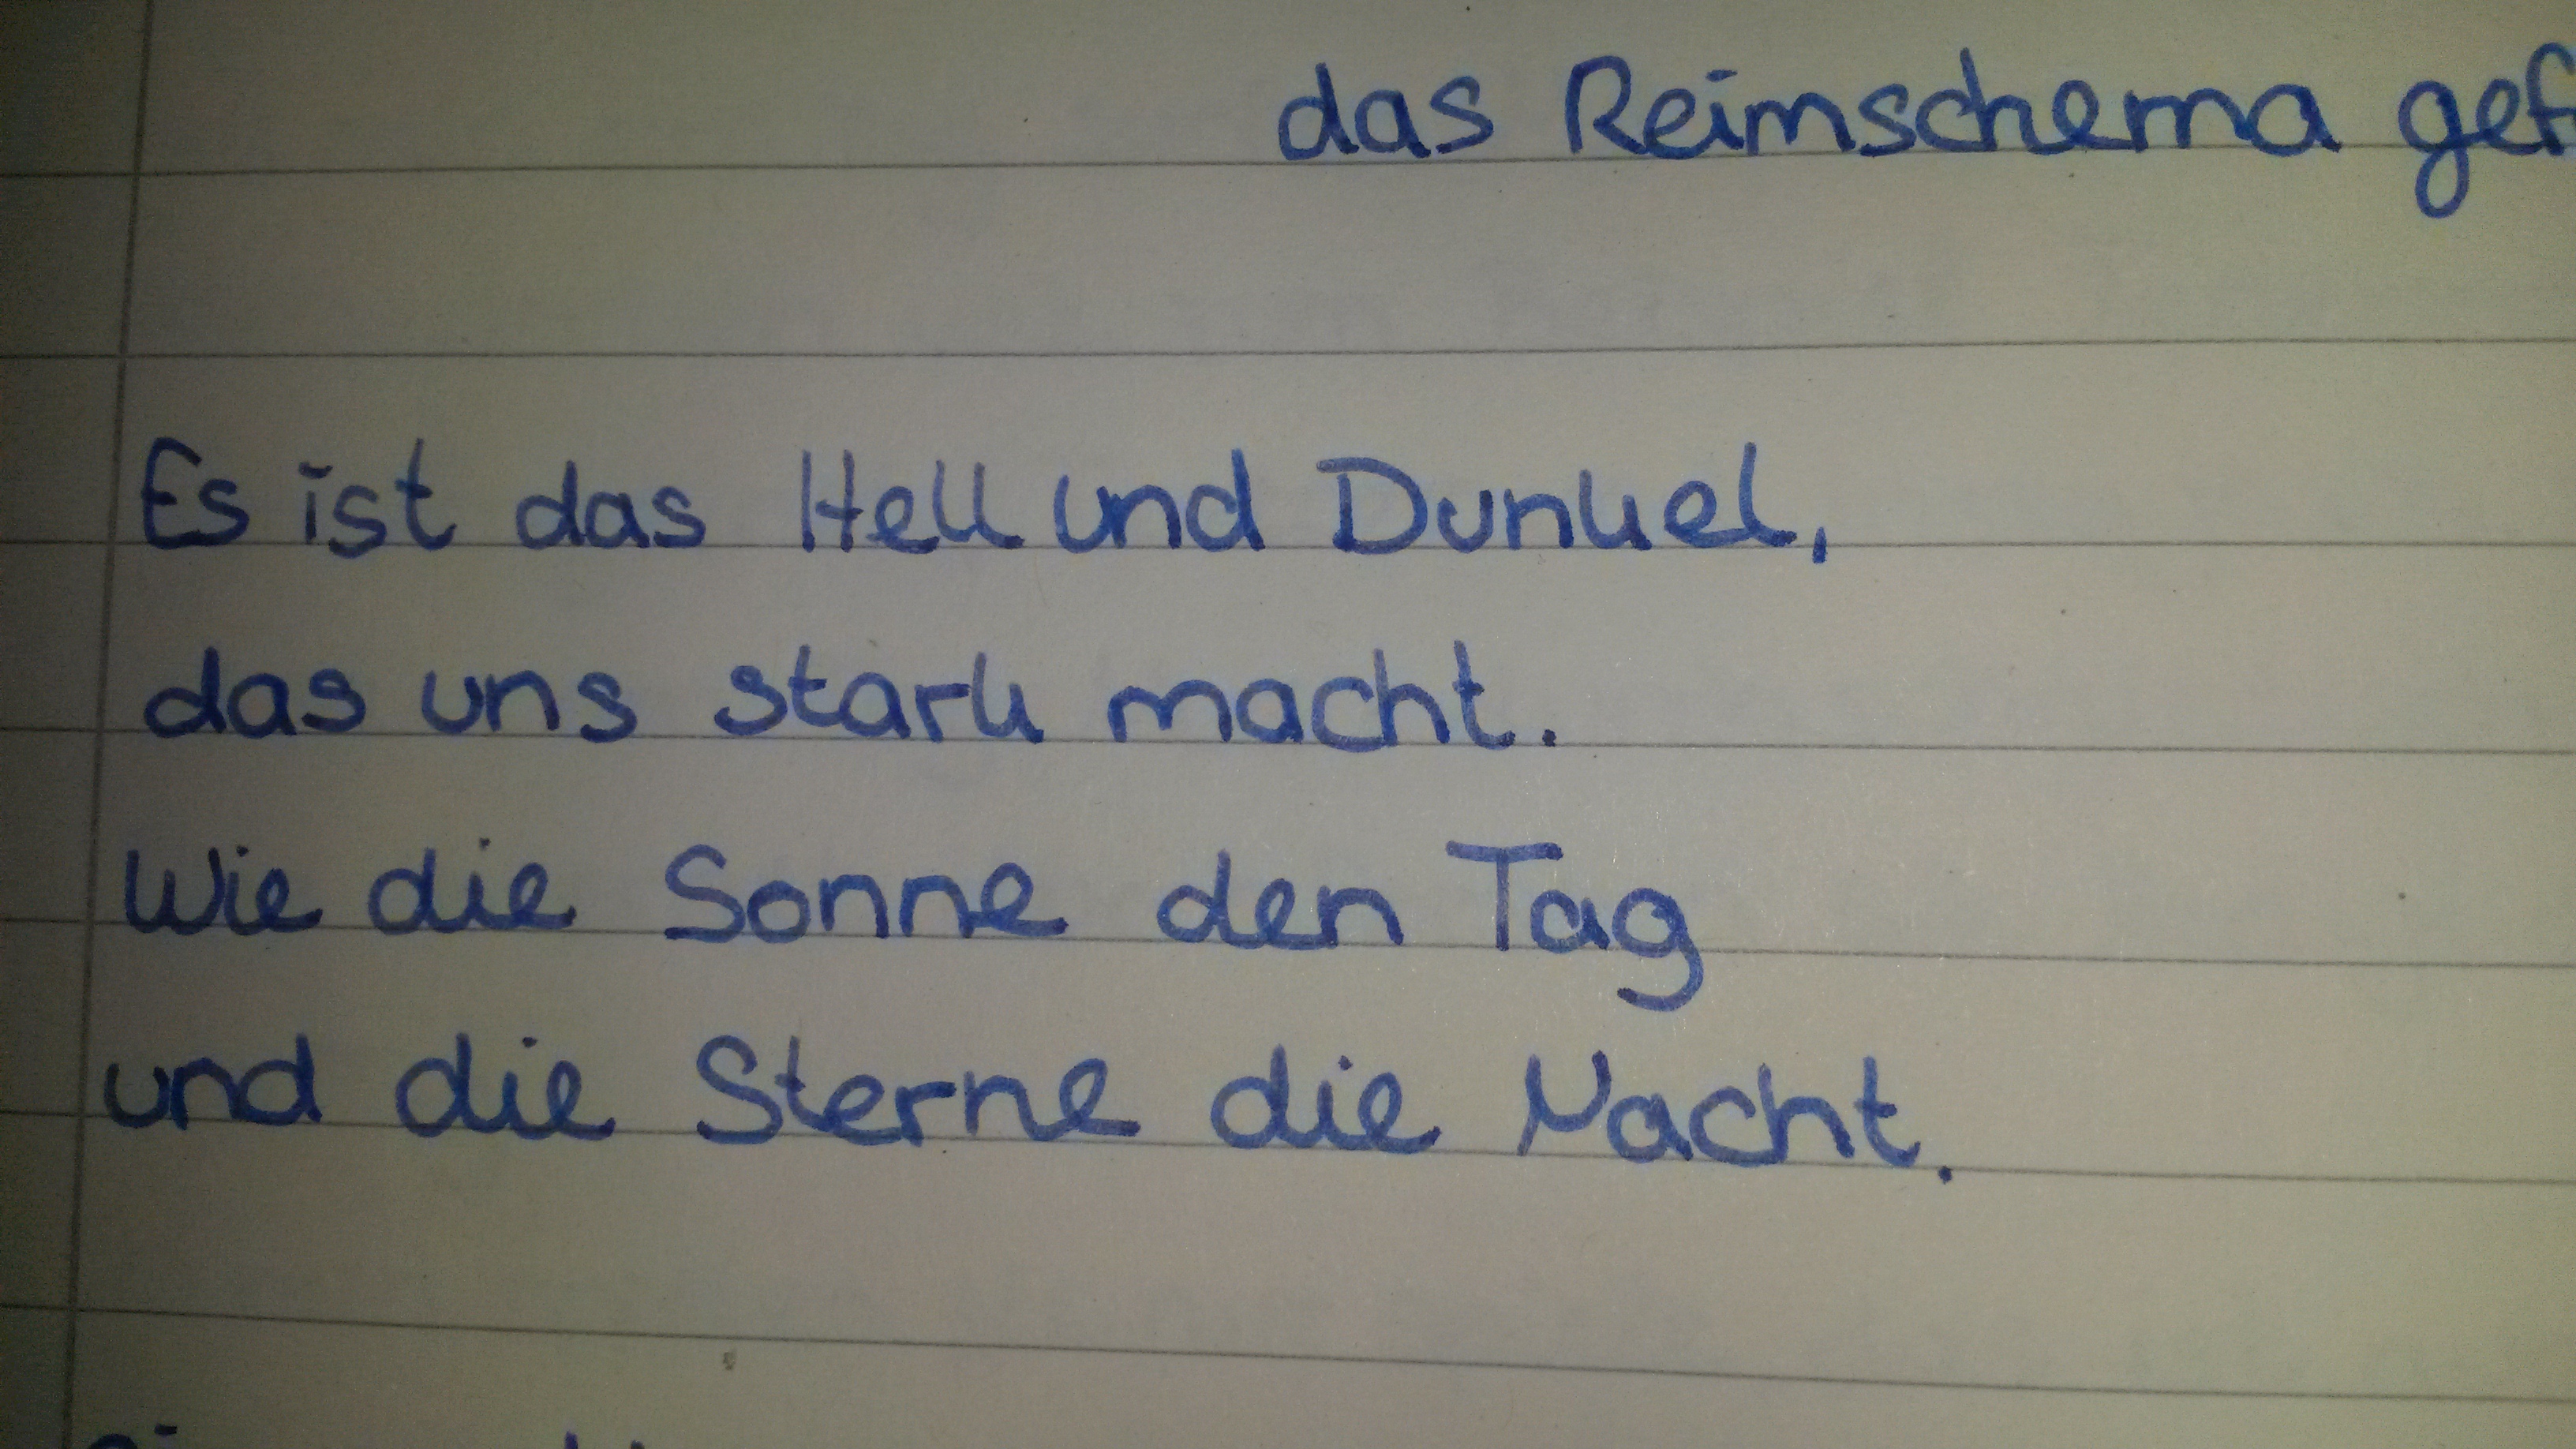 das Reimschema
Es ist das Hell und Dunkel,
das uns stark macht.
Wie die Sonne den Tag
und die Sterne die Nacht.